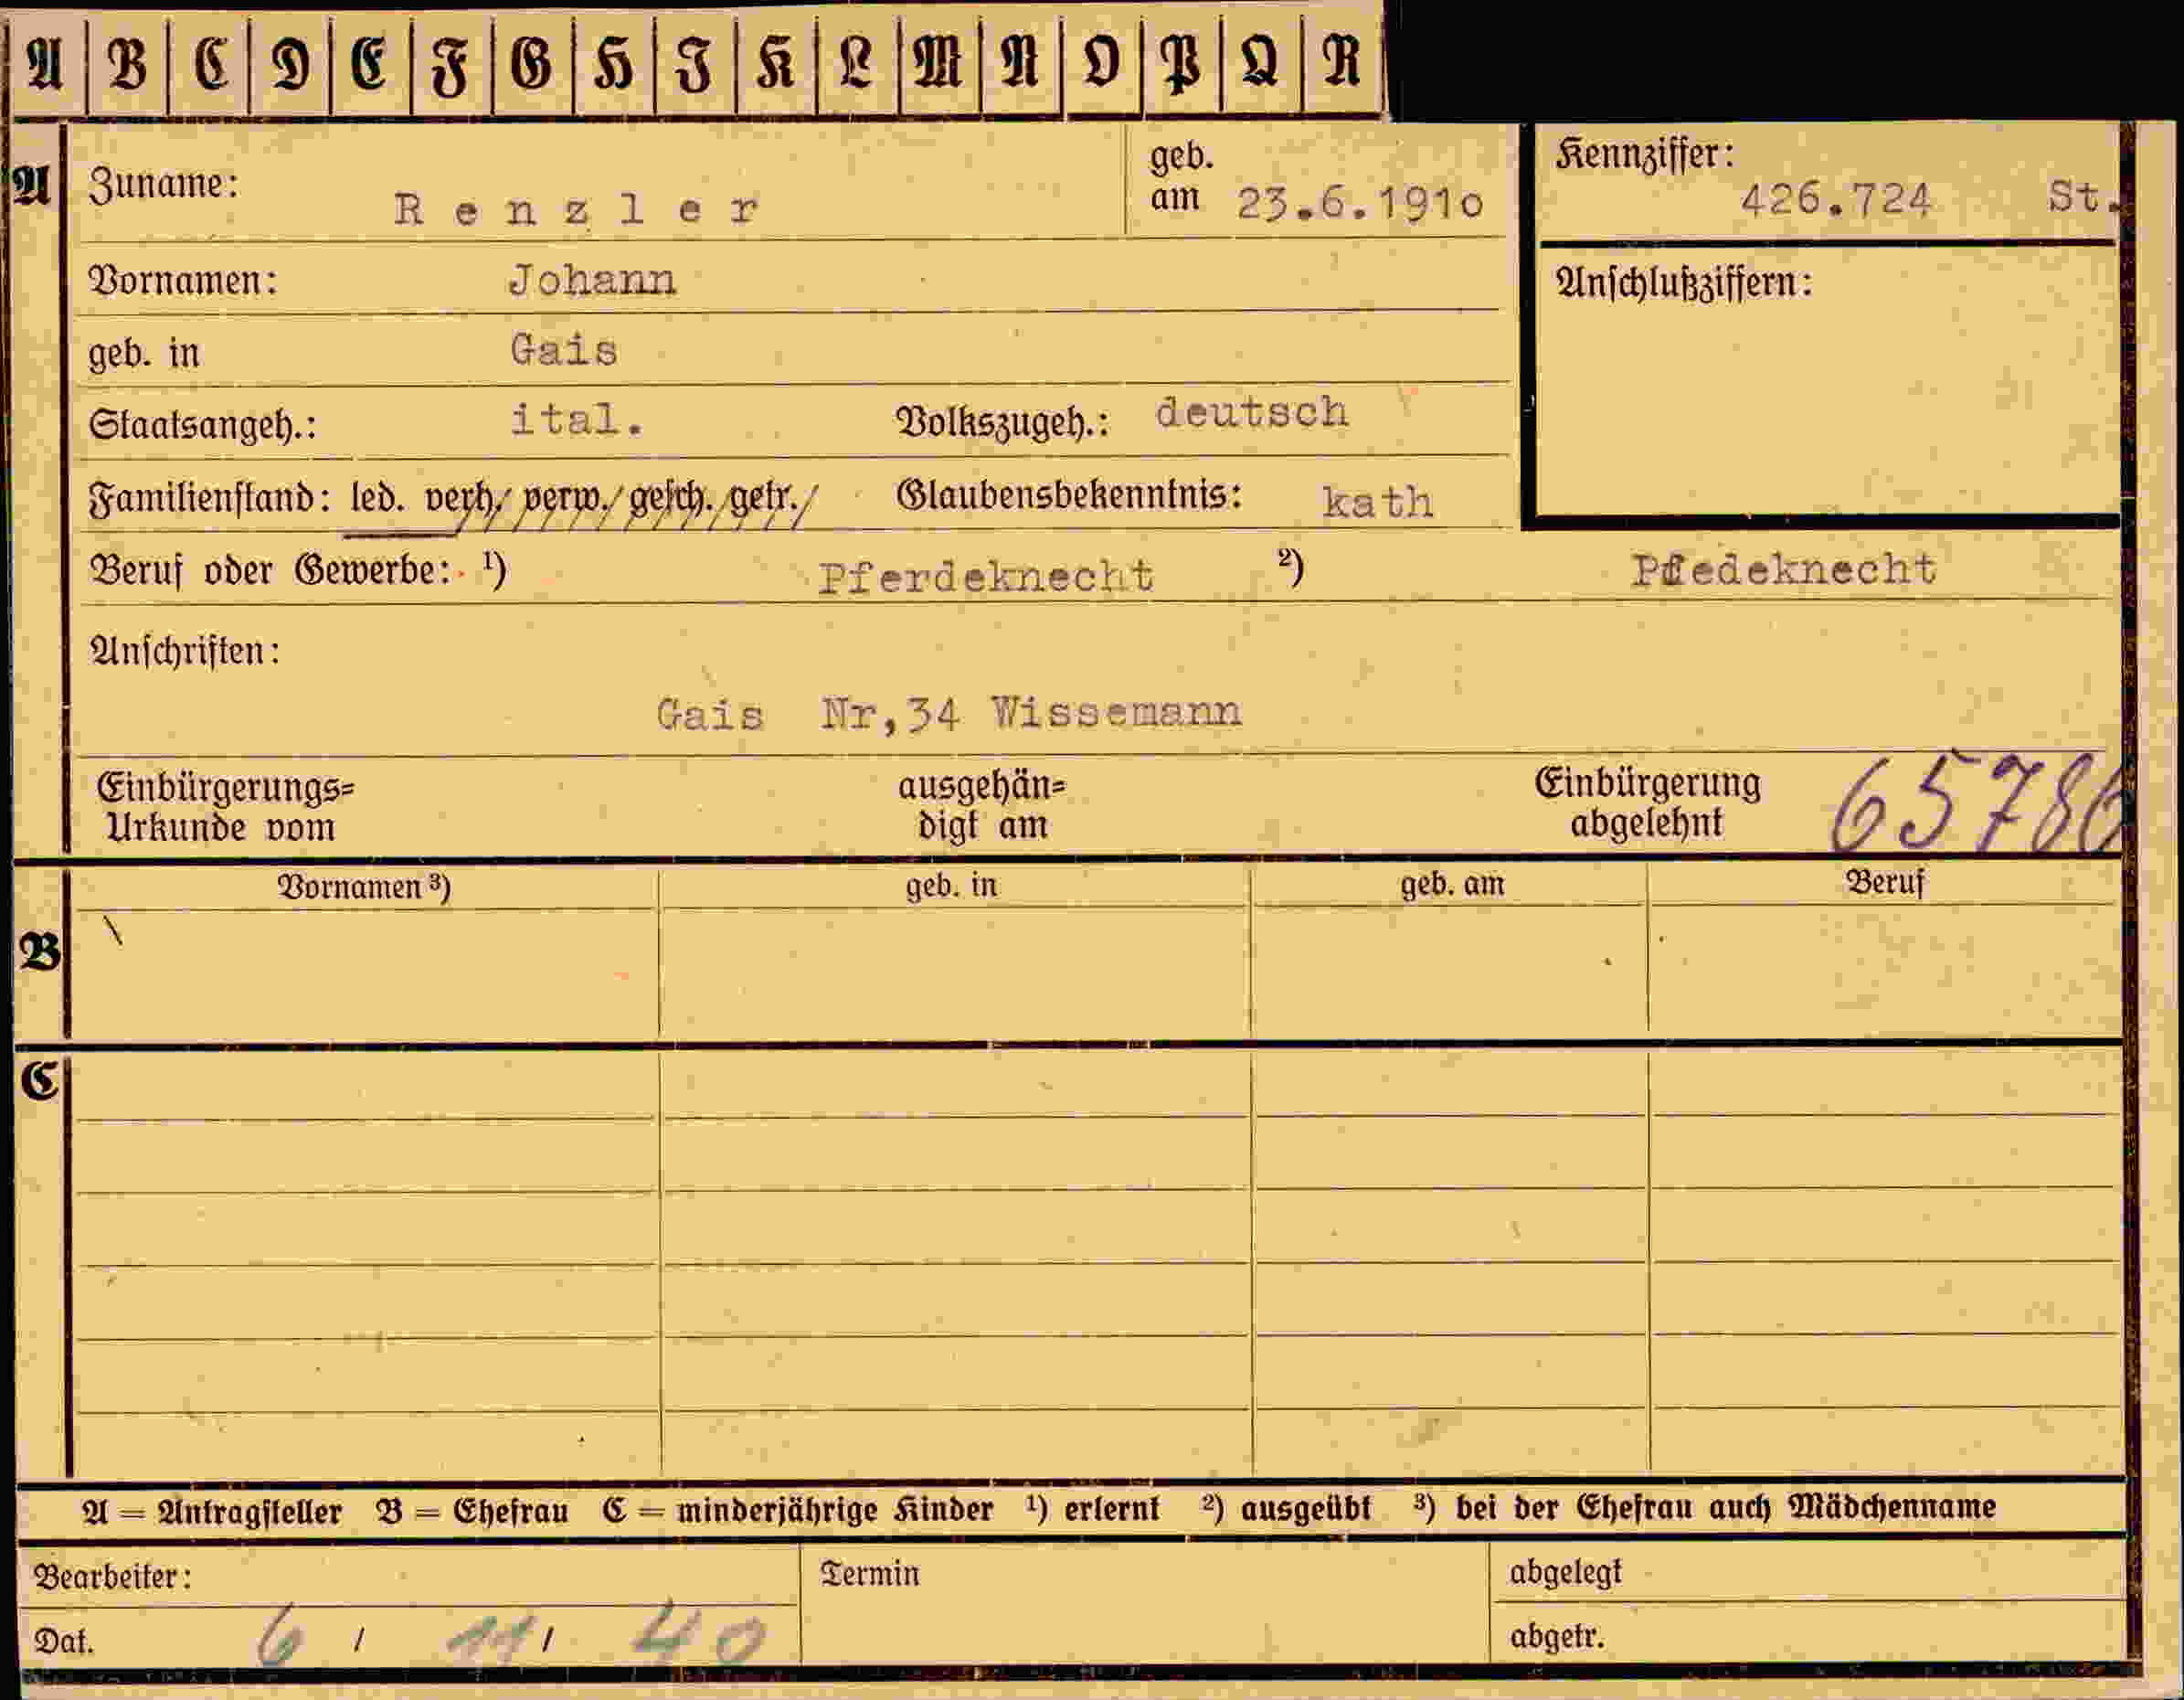 A B C D E F G H I K L M N O P Q R
A Zuname: Renzler geb. am 23.6.1910 Kennziffer: 426.724 St.
Vornamen: Johann Anschlußziffern:
geb. in Gais
Staatsangeh.: ital. Volkszugeh.: deutsch
Familienstand: led. verh. verw. gesch. getr. Glaubensbekenntnis: kath
Beruf oder Gewerbe: 1) Pferdeknecht 2) Pfedeknecht
Anschriften:
Gais Nr,34 Wissemann
Einbürgerungs= ausgehän= Einbürgerung 65786
Urkunde vom digt am abgelehnt
Vornamen 3) geb. in geb. am Beruf
B
C
A = Antragsteller B = Ehefrau C = minderjährige Kinder 1) erlernt 2) ausgeübt 3) bei der Ehefrau auch Mädchenname
Bearbeiter: Termin abgelegt
Dat. 6 / 11 / 40 abgetr.